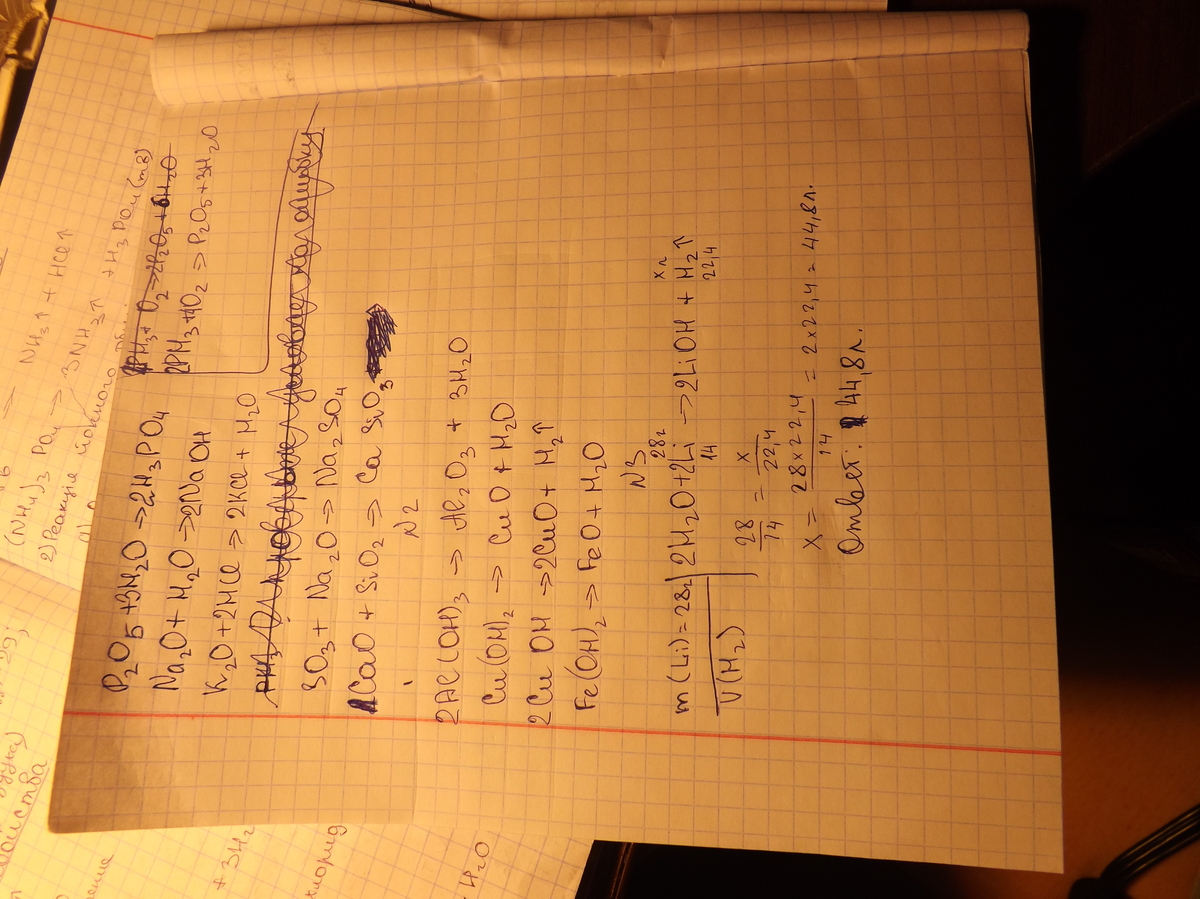 P₂O₅ + 3H₂O → 2H₃PO₄
Na₂O + H₂O → 2NaOH
K₂O + 2HCl → 2KCl + H₂O
SO₃ + Na₂O → Na₂SO₄
CaO + SiO₂ → CaSiO₃
2PH₃ + O₂ → 2P₂O₅ + 6H₂O
2PH₃ + 4O₂ → P₂O₅ + 3H₂O
N2
2Al(OH)₃ → Al₂O₃ + 3H₂O
Cu(OH)₂ → CuO + H₂O
2CuOH → 2CuO + H₂↑
Fe(OH)₂ → FeO + H₂O
N3
28г xл
m(Li) = 28г 2H₂O + 2Li → 2LiOH + H₂↑
14 22,4
V(H₂)
28/14 = x/22,4
x = 28 × 22,4 / 14 = 2 × 22,4 = 44,8л.
Ответ: 44,8л.
→ NH₃↑ + HCl↑
(NH₄)₃PO₄ → 3NH₃↑ + H₃PO₄(тв)
2) Реакция ионного
+ 3H₂
хлорид
H₂O